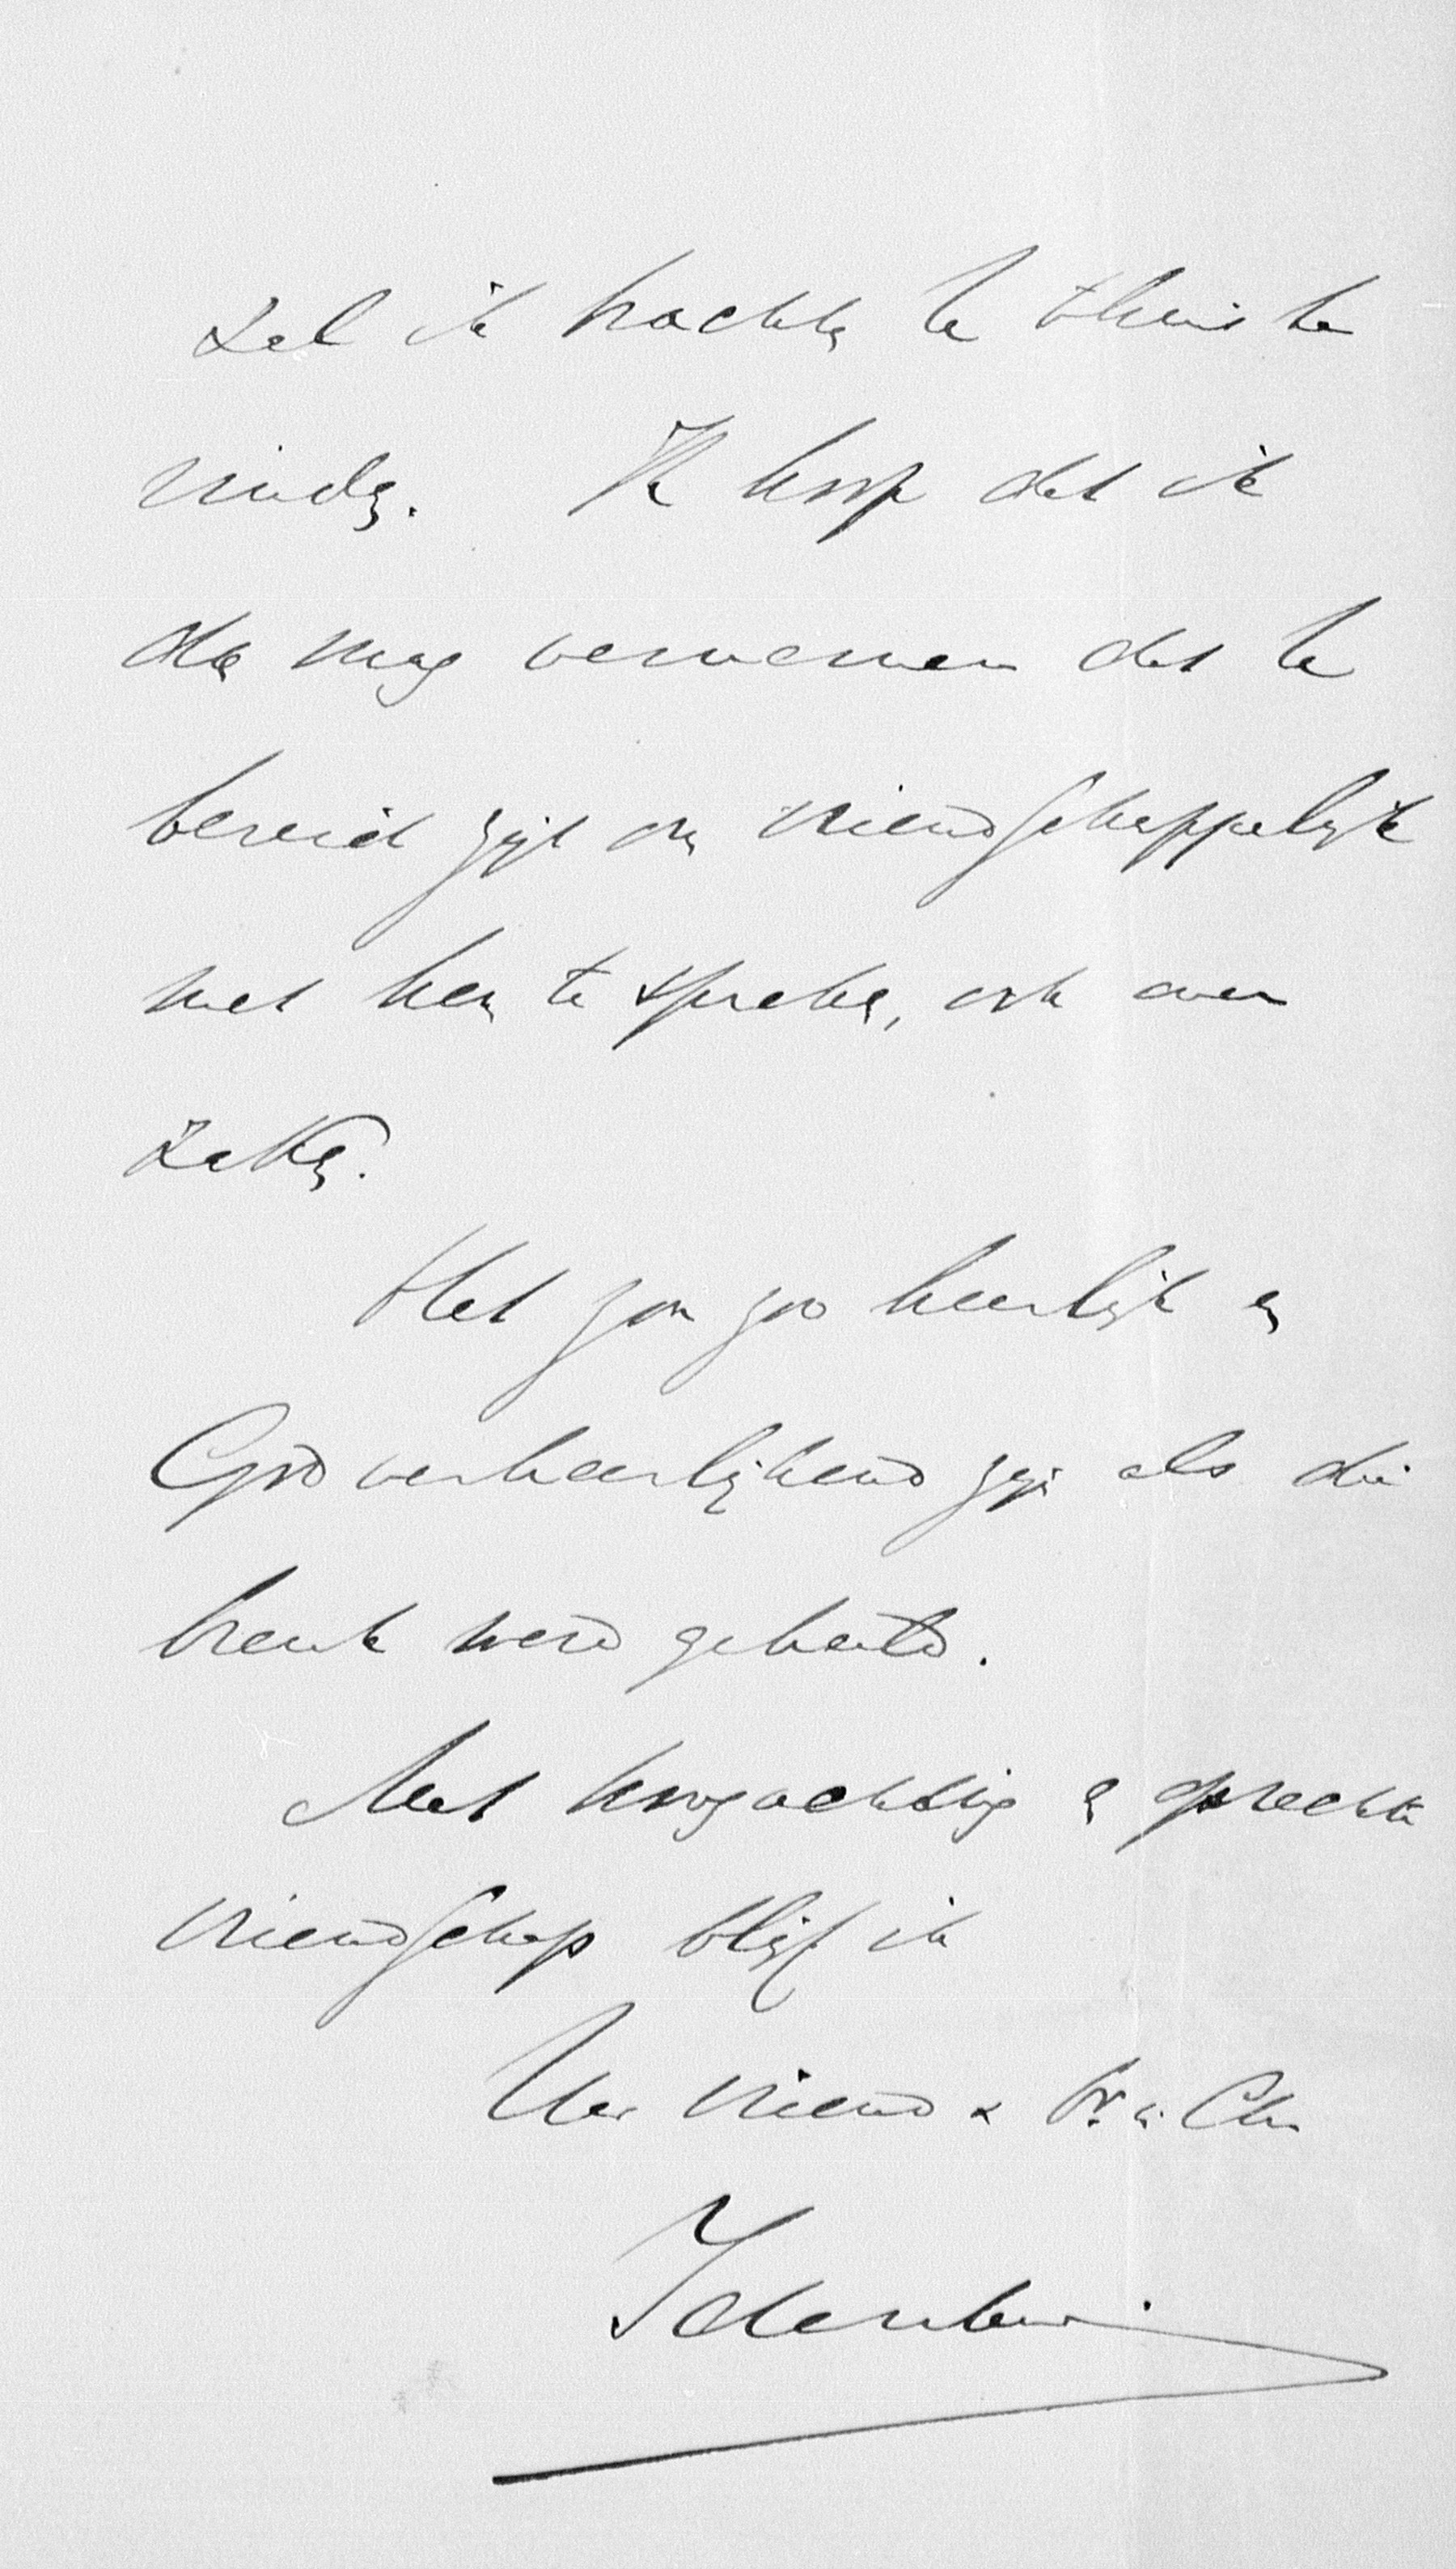 zal ik trachten U thuis te
vinden. Ik hoop dat ik
dan mag vernemen dat U
bereid zijt om vriendschappelijk
met hem te spreken, ook over
zaken.
Het zou zoo heerlijk en
Godverheerlijkend zijn als die
breuk werd geheeld.
Met hoogachting en oprechte
vriendschap blijf ik
Uw vriend & br. i. Chr.
Idenburg